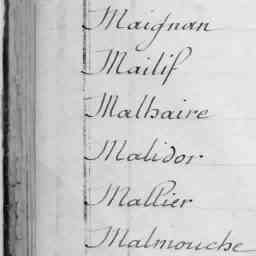 Maignan
Mailif
Malhaire
Malidor
Mallier
Malmouche